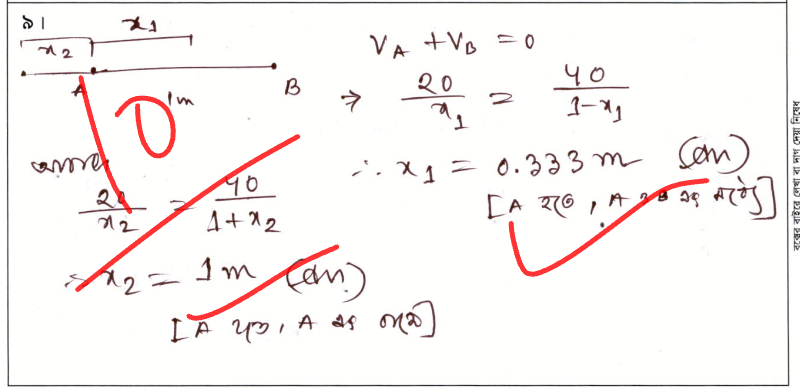 ৯।
x₁
x₂
A
B
1m
0
V_A + V_B = 0
⇒ 20/x₁ = 40/(1-x₁)
∴ x₁ = 0.333 m (Ans)
[A হতে, A ও B এর মধ্যে]
আবার
20/x₂ = 40/(1+x₂)
∴ x₂ = 1m (Ans)
[A হতে, A এর বামে]
বক্সের বাইরে লেখা বা দাগ দেয়া নিষেধ